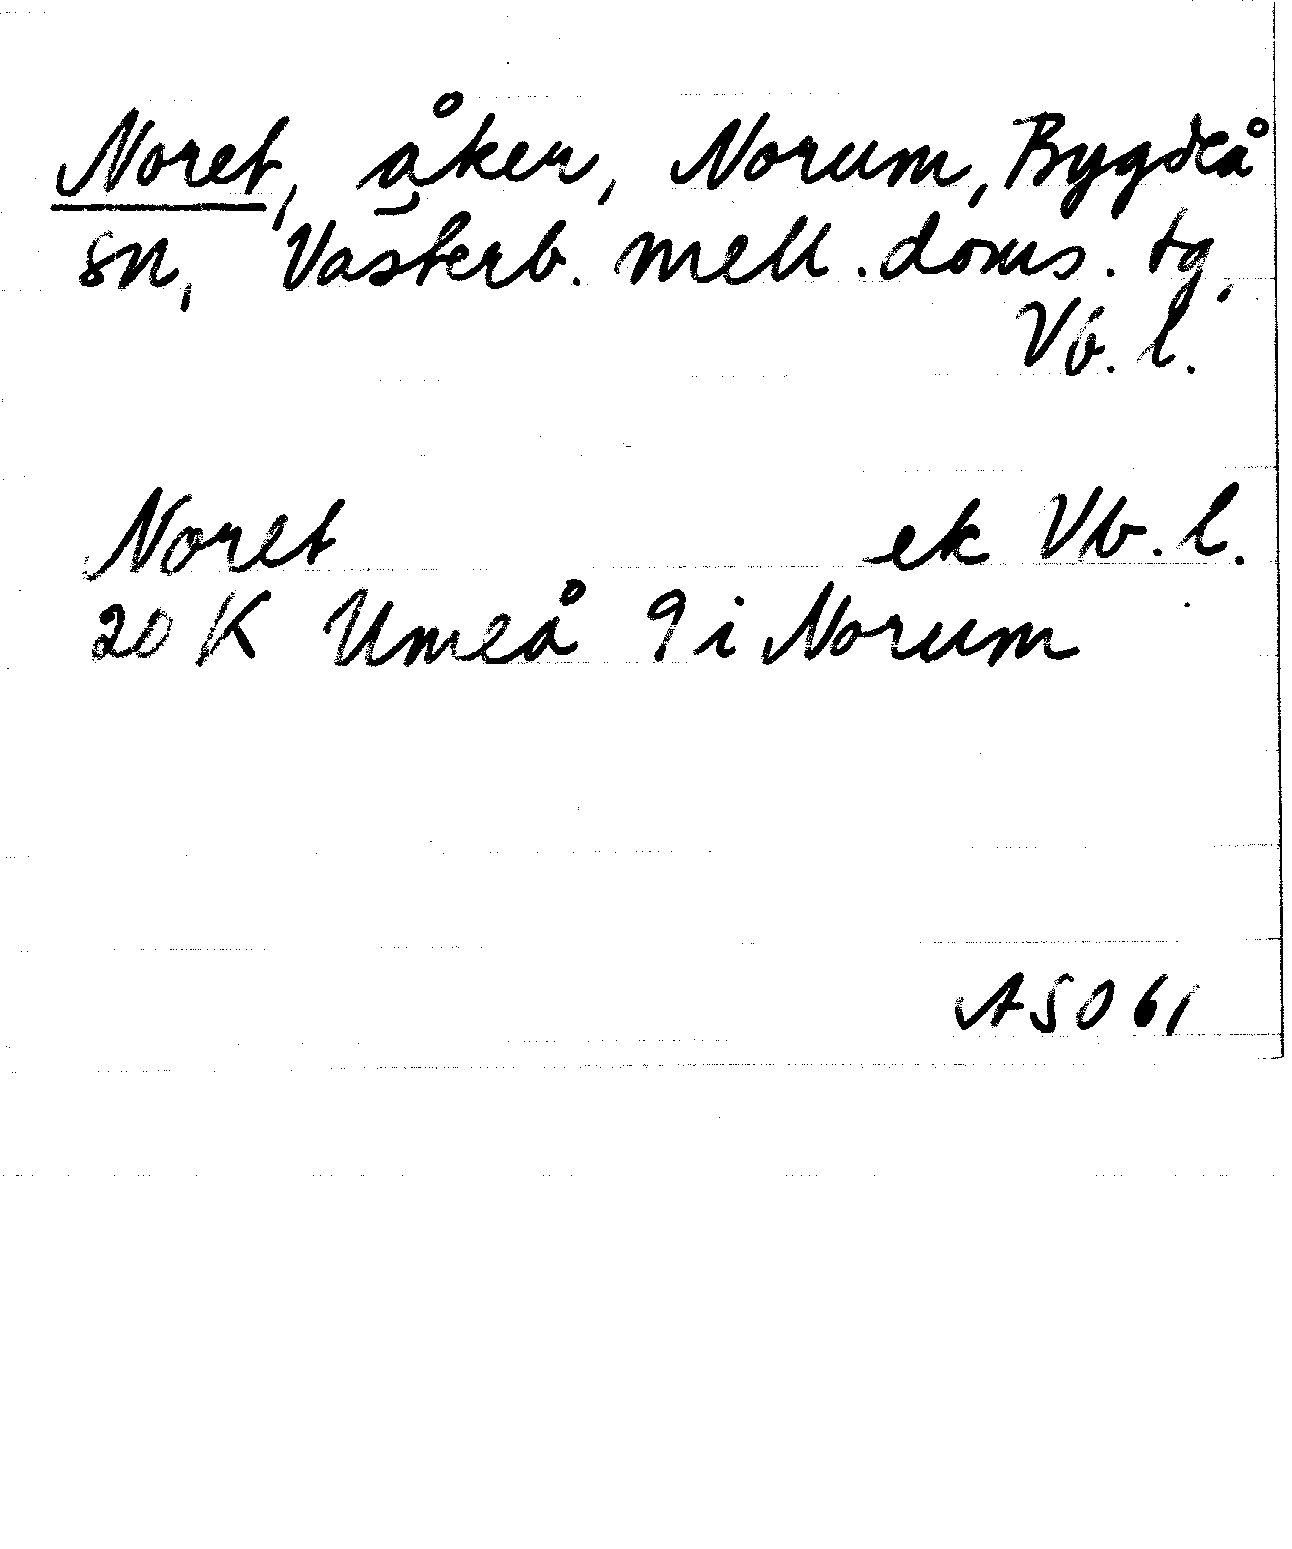 Noret, åker, Norum, Bygdeå
sn, Västerb. mell. doms. tg,
Vb. l.
Noret ek Vb. l.
20 K Umeå 9 i Norum
ASO 61